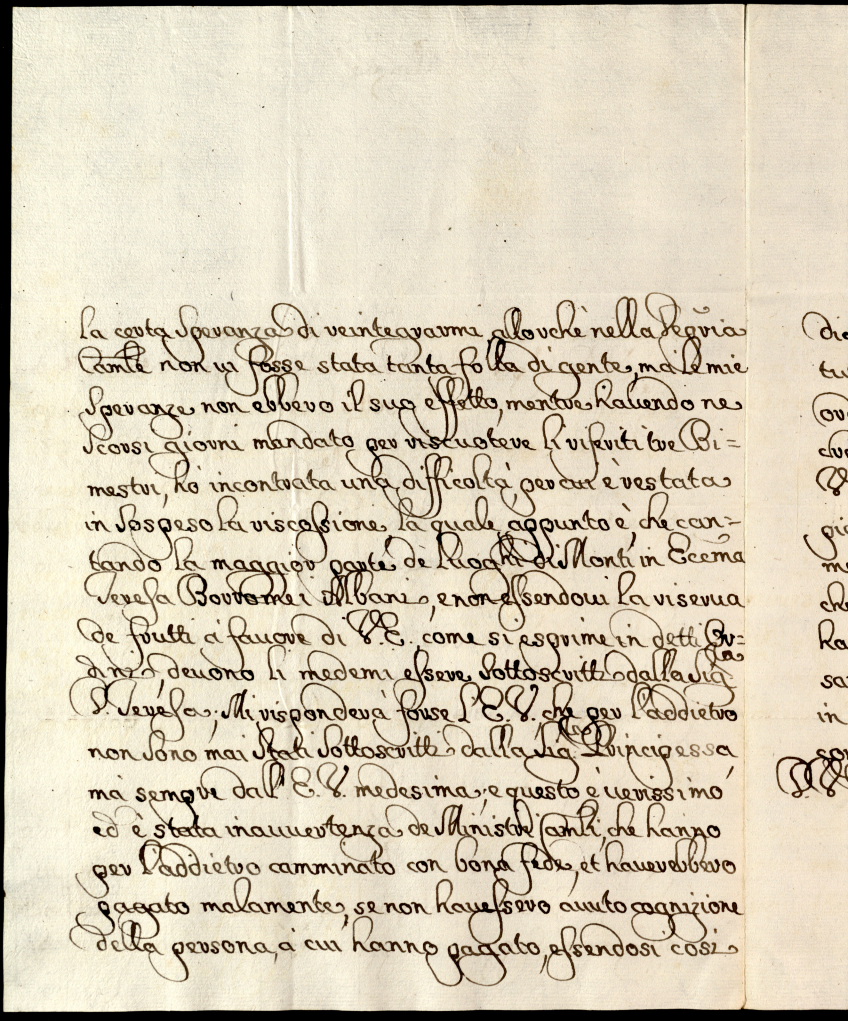 la certa speranza di reintegrarmi allorche nella Segria
Camle non vi fosse stata tanta folla di gente, ma le mie
speranze non ebbero il suo effetto, mentre havendo ne
scorsi giorni mandato per riscuotere li riferiti tre Bi=
mestri, hò incontrata una difficoltà, per cui è restata
in sospeso la riscossione, la quale appunto è, che can=
tando la maggior parte de Luoghi di Monti in Eccma
Teresa Borromei Albani, e non essendovi la riserva
de frutti à favore di V. E., come si esprime in detti Or=
dini, devono li medemi essere sottoscritti dalla Siga
D. Teresa; Mi risponderà forse l'E. V. che per l'addietro
non sono mai stati sottoscritti dalla Siga Principessa
mà sempre dall' E. V. medesima, e questo è verissimo
ed è stata inavvertenza de Ministri Camli, che hanno
per l'addietro camminato con bona fede, et haverebbero
pagato malamente, se non havessero avuto cognizione
della persona, à cui hanno pagato, essendosi così
dic
tu
ov
cu
V
gio
me
che
ha
sa
in
son